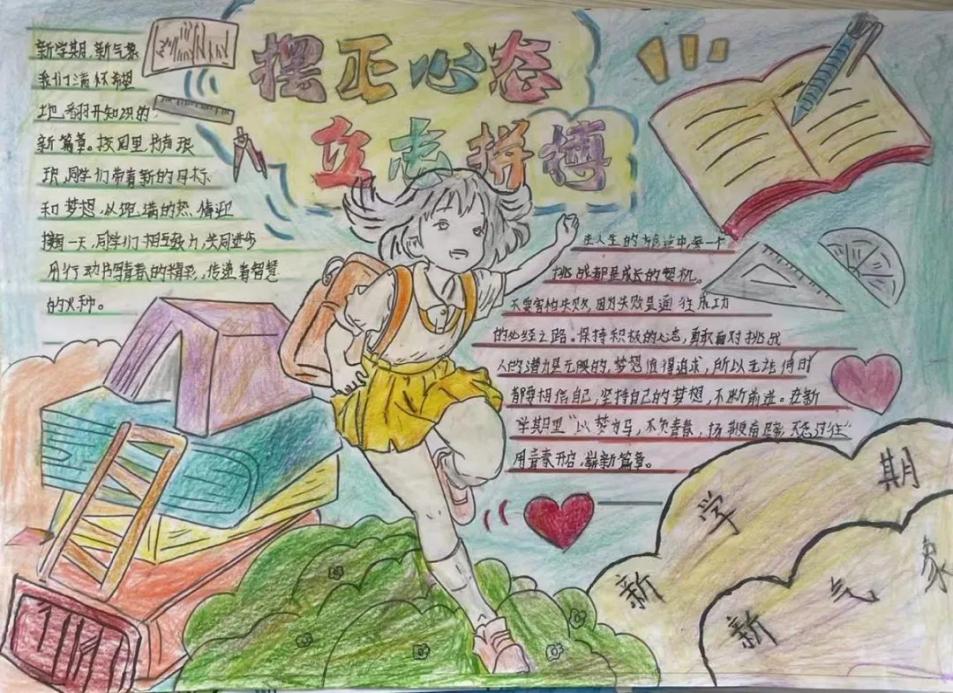 摆正心态
立志拼搏
新学期,新气象
我们满怀希望
地翻开知识的
新篇章。校园里书声琅
琅,同学们带着新的目标
和梦想,以饱满的热情迎
接每一天,同学们相互努力,共同进步
用行动书写青春的精彩,传递着智慧
的火种。
在人生的旅途中,每一个
挑战都是成长的契机。
不要害怕失败,因为失败是通往成功
的必经之路。保持积极的心态,勇敢面对挑战
人的潜力是无限的,梦想值得追求,所以无论何时
都要相信自己,坚持自己的梦想,不断前进。在新
学期里"以梦为马,不负青春,扬鞭奋蹄,不忘过往"
用青春开启,崭新篇章。
新学期
新气象